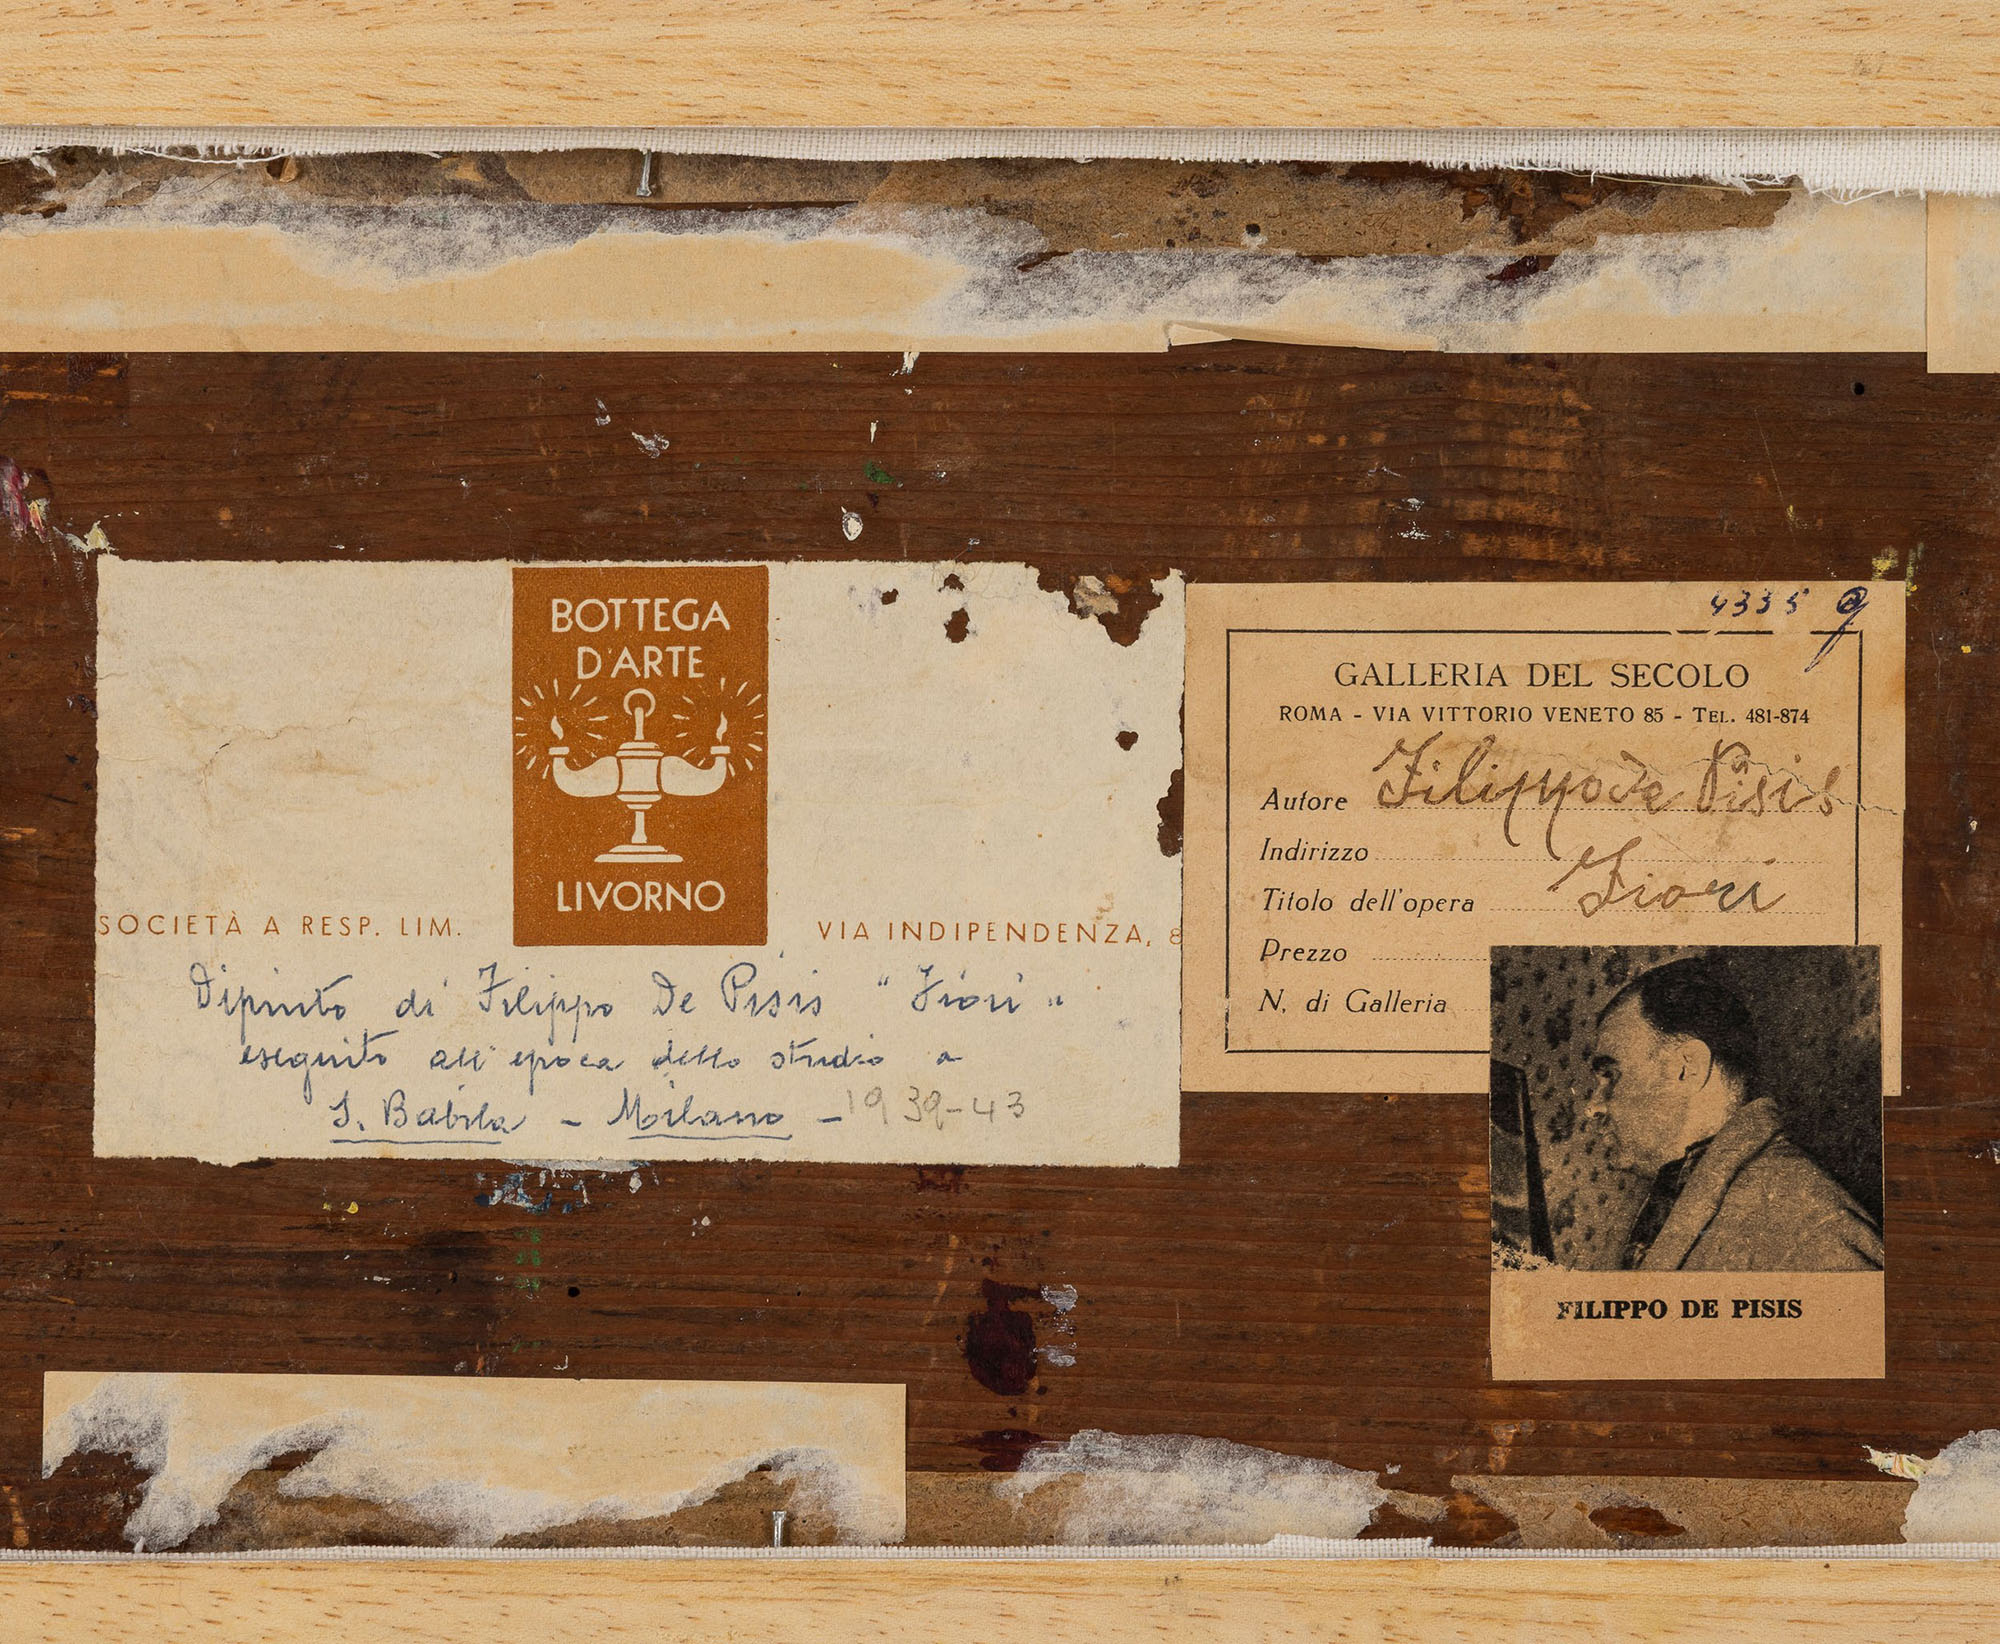 BOTTEGA
D'ARTE
LIVORNO
SOCIETÀ A RESP. LIM.
VIA INDIPENDENZA, 8
Dipinto di Filippo De Pisis "Fiori"
eseguito all'epoca dello studio a
S. Babila - Milano - 1939-43
4335
GALLERIA DEL SECOLO
ROMA - VIA VITTORIO VENETO 85 - TEL. 481-874
Autore Filippo De Pisis
Indirizzo
Titolo dell'opera Fiori
Prezzo
N. di Galleria
FILIPPO DE PISIS